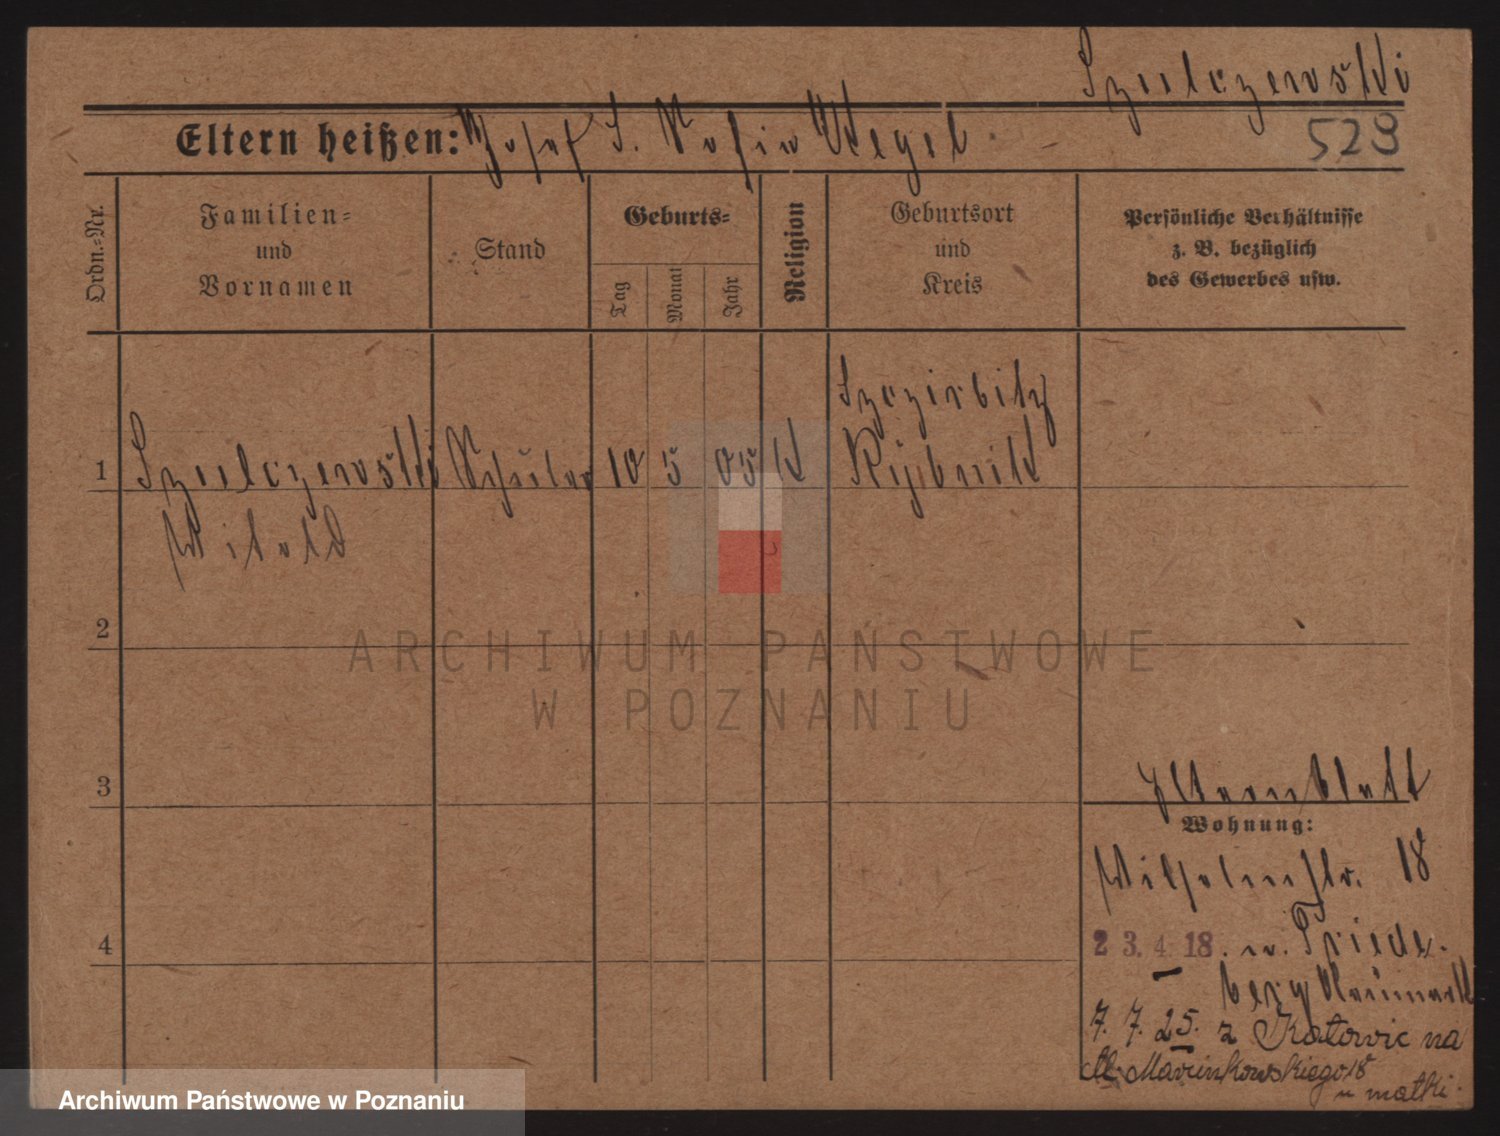 Szulczewski
Eltern heißen: Josef S. Sofie Wegel
529
Ordn.-Nr.
Familien-
und
Vornamen
Stand
Geburts-
Tag
Monat
Jahr
Religion
Geburtsort
und
Kreis
Persönliche Verhältnisse
z. B. bezüglich
des Gewerbes usw.
Szczirbitz
1 Szulczewski Schüler 10 5 05 K Rybnik
Witold
2
ARCHIWUM PAŃSTWOWE
W POZNANIU
3
Elternblatt
Wohnung:
Wilhelmstr. 18
4
23. 4. 18. n. Friede-
berg Neumark
7. 7. 25. z Katowic na
Al. Marcinkowskiego 18
u matki.
Archiwum Państwowe w Poznaniu